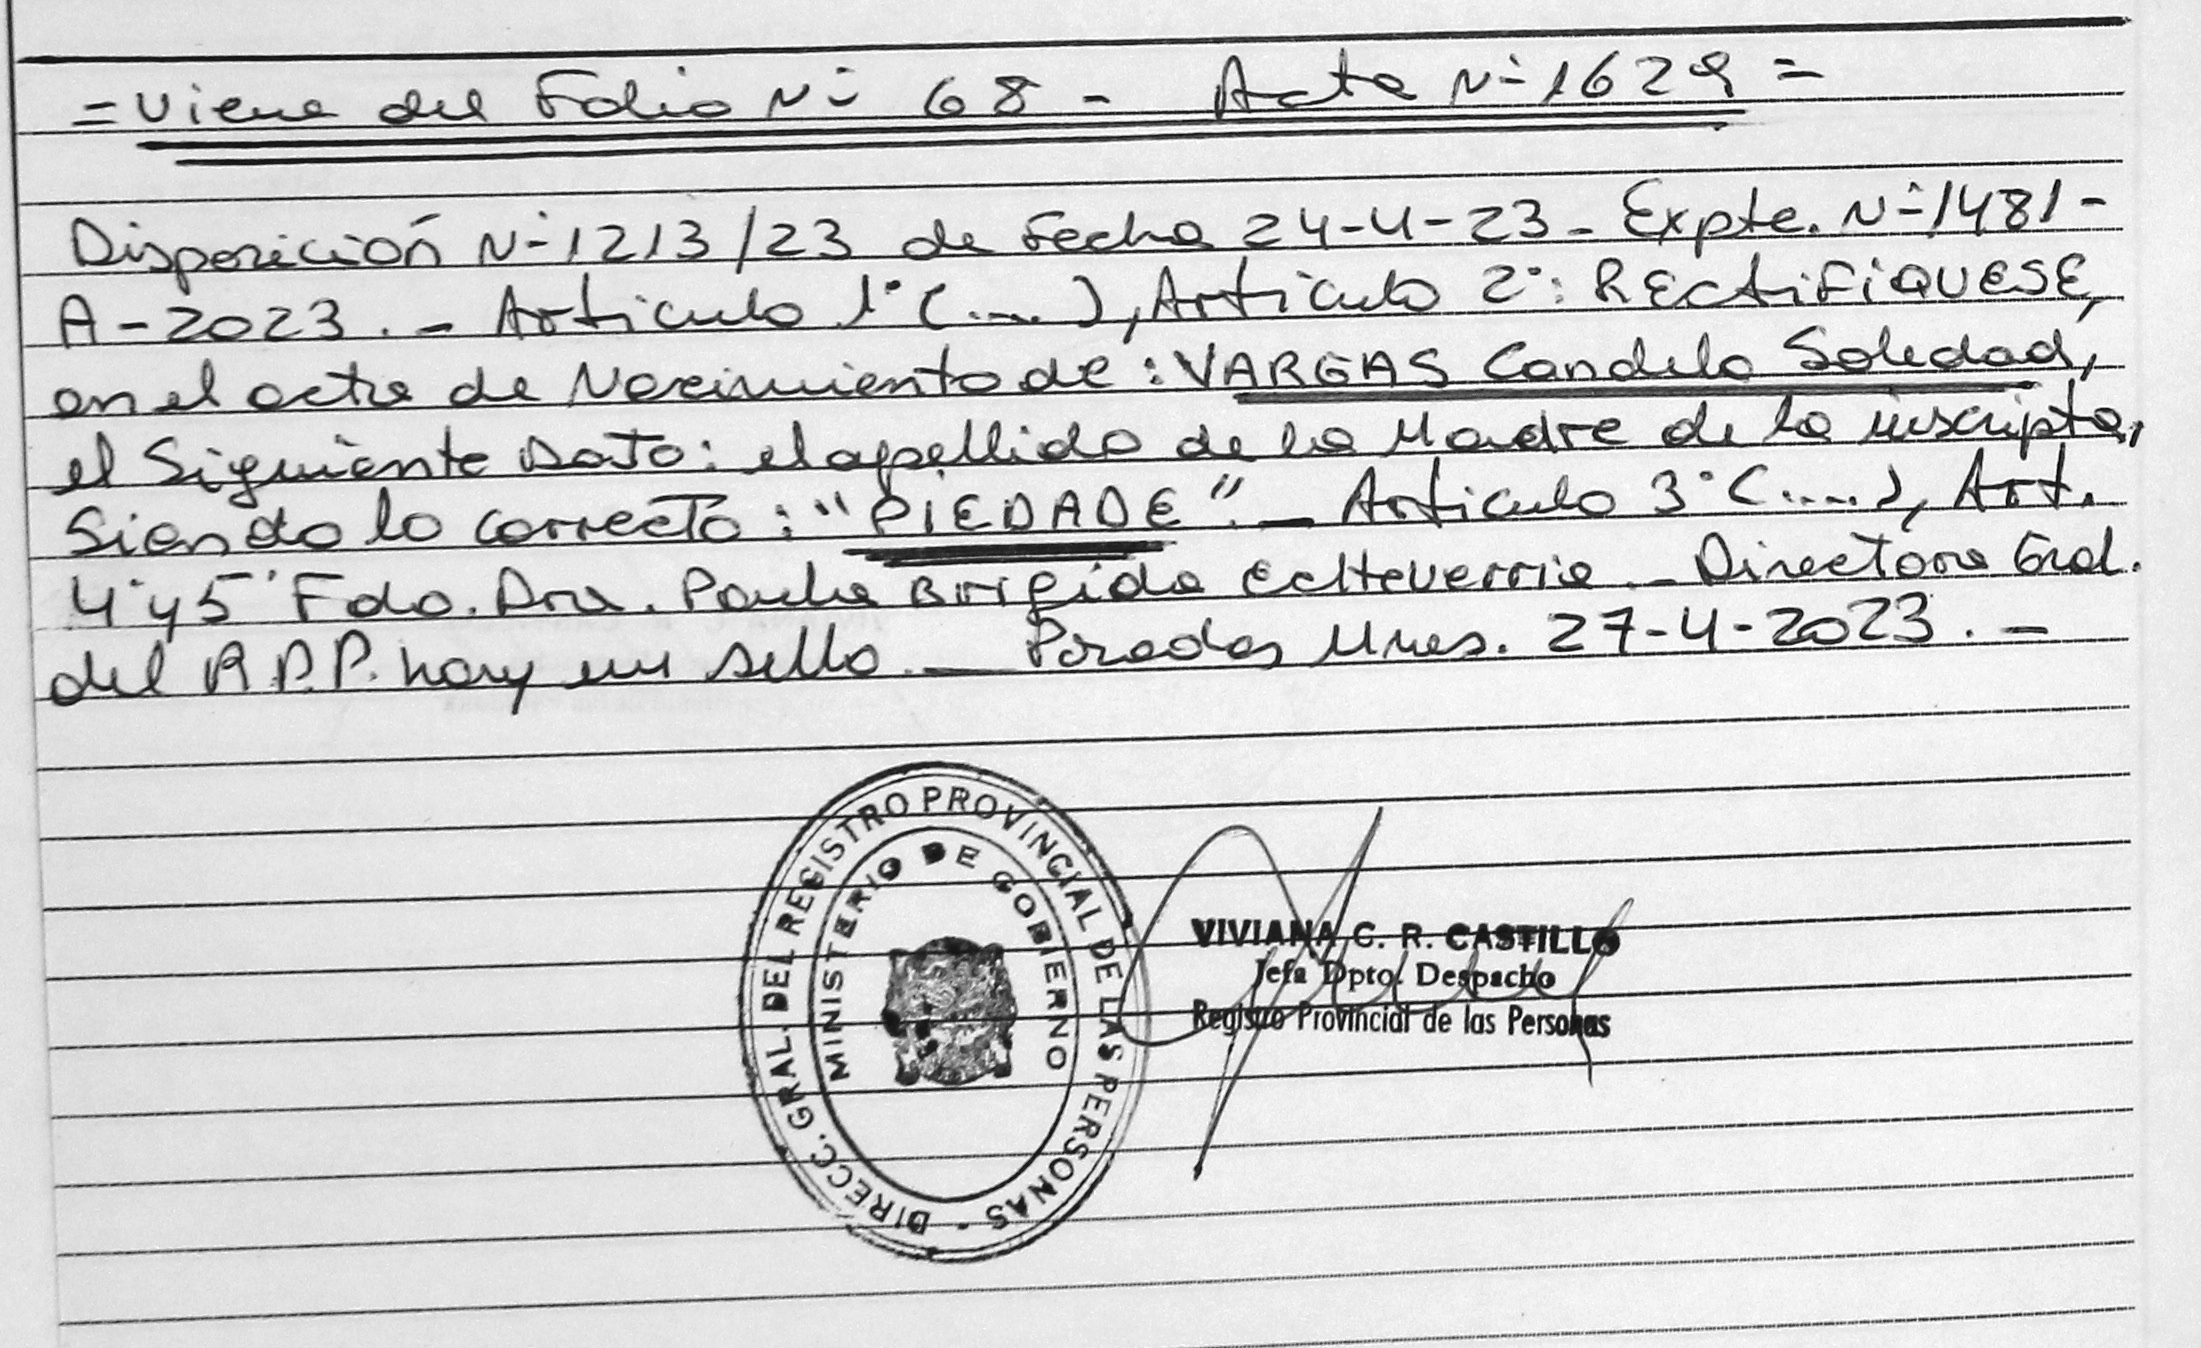 = Viene del Folio Nº 68 - Acta Nº 1629 =
Disposición Nº 1213/23 de Fecha 24-4-23 - Expte. Nº 1481-
A-2023. - Articulo 1° (....), Articulo 2°: RECTIFIQUESE,
en el acta de Nacimiento de: VARGAS Candela Soledad,
el Siguiente Dato: el apellido de la Madre de la inscripta,
Siendo lo correcto: "PIEDADE". - Articulo 3° (.....), Art.
4° y 5° Fdo. Dra. Paula Brigida Echeverria - Directora Gral.
del R.P.P. hay un sello. - Posadas Mnes. 27-4-2023. -
DIRECC. GRAL. DEL REGISTRO PROVINCIAL DE LAS PERSONAS -
MINISTERIO DE GOBIERNO
VIVIANA C. R. CASTILLO
Jefa Dpto. Despacho
Registro Provincial de las Personas